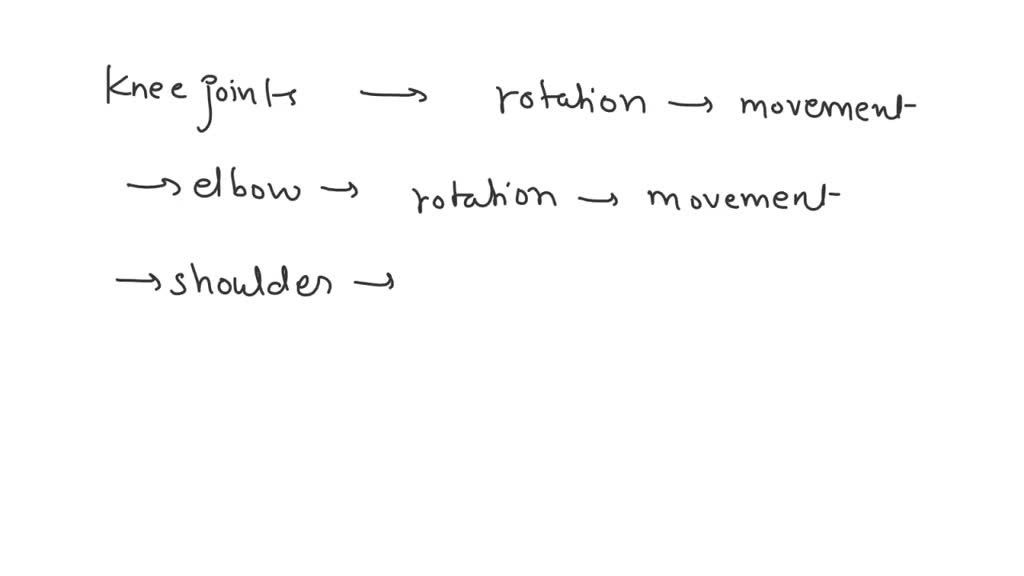 Knee joints → rotation → movement
→ elbow → rotation → movement
→ shoulder →